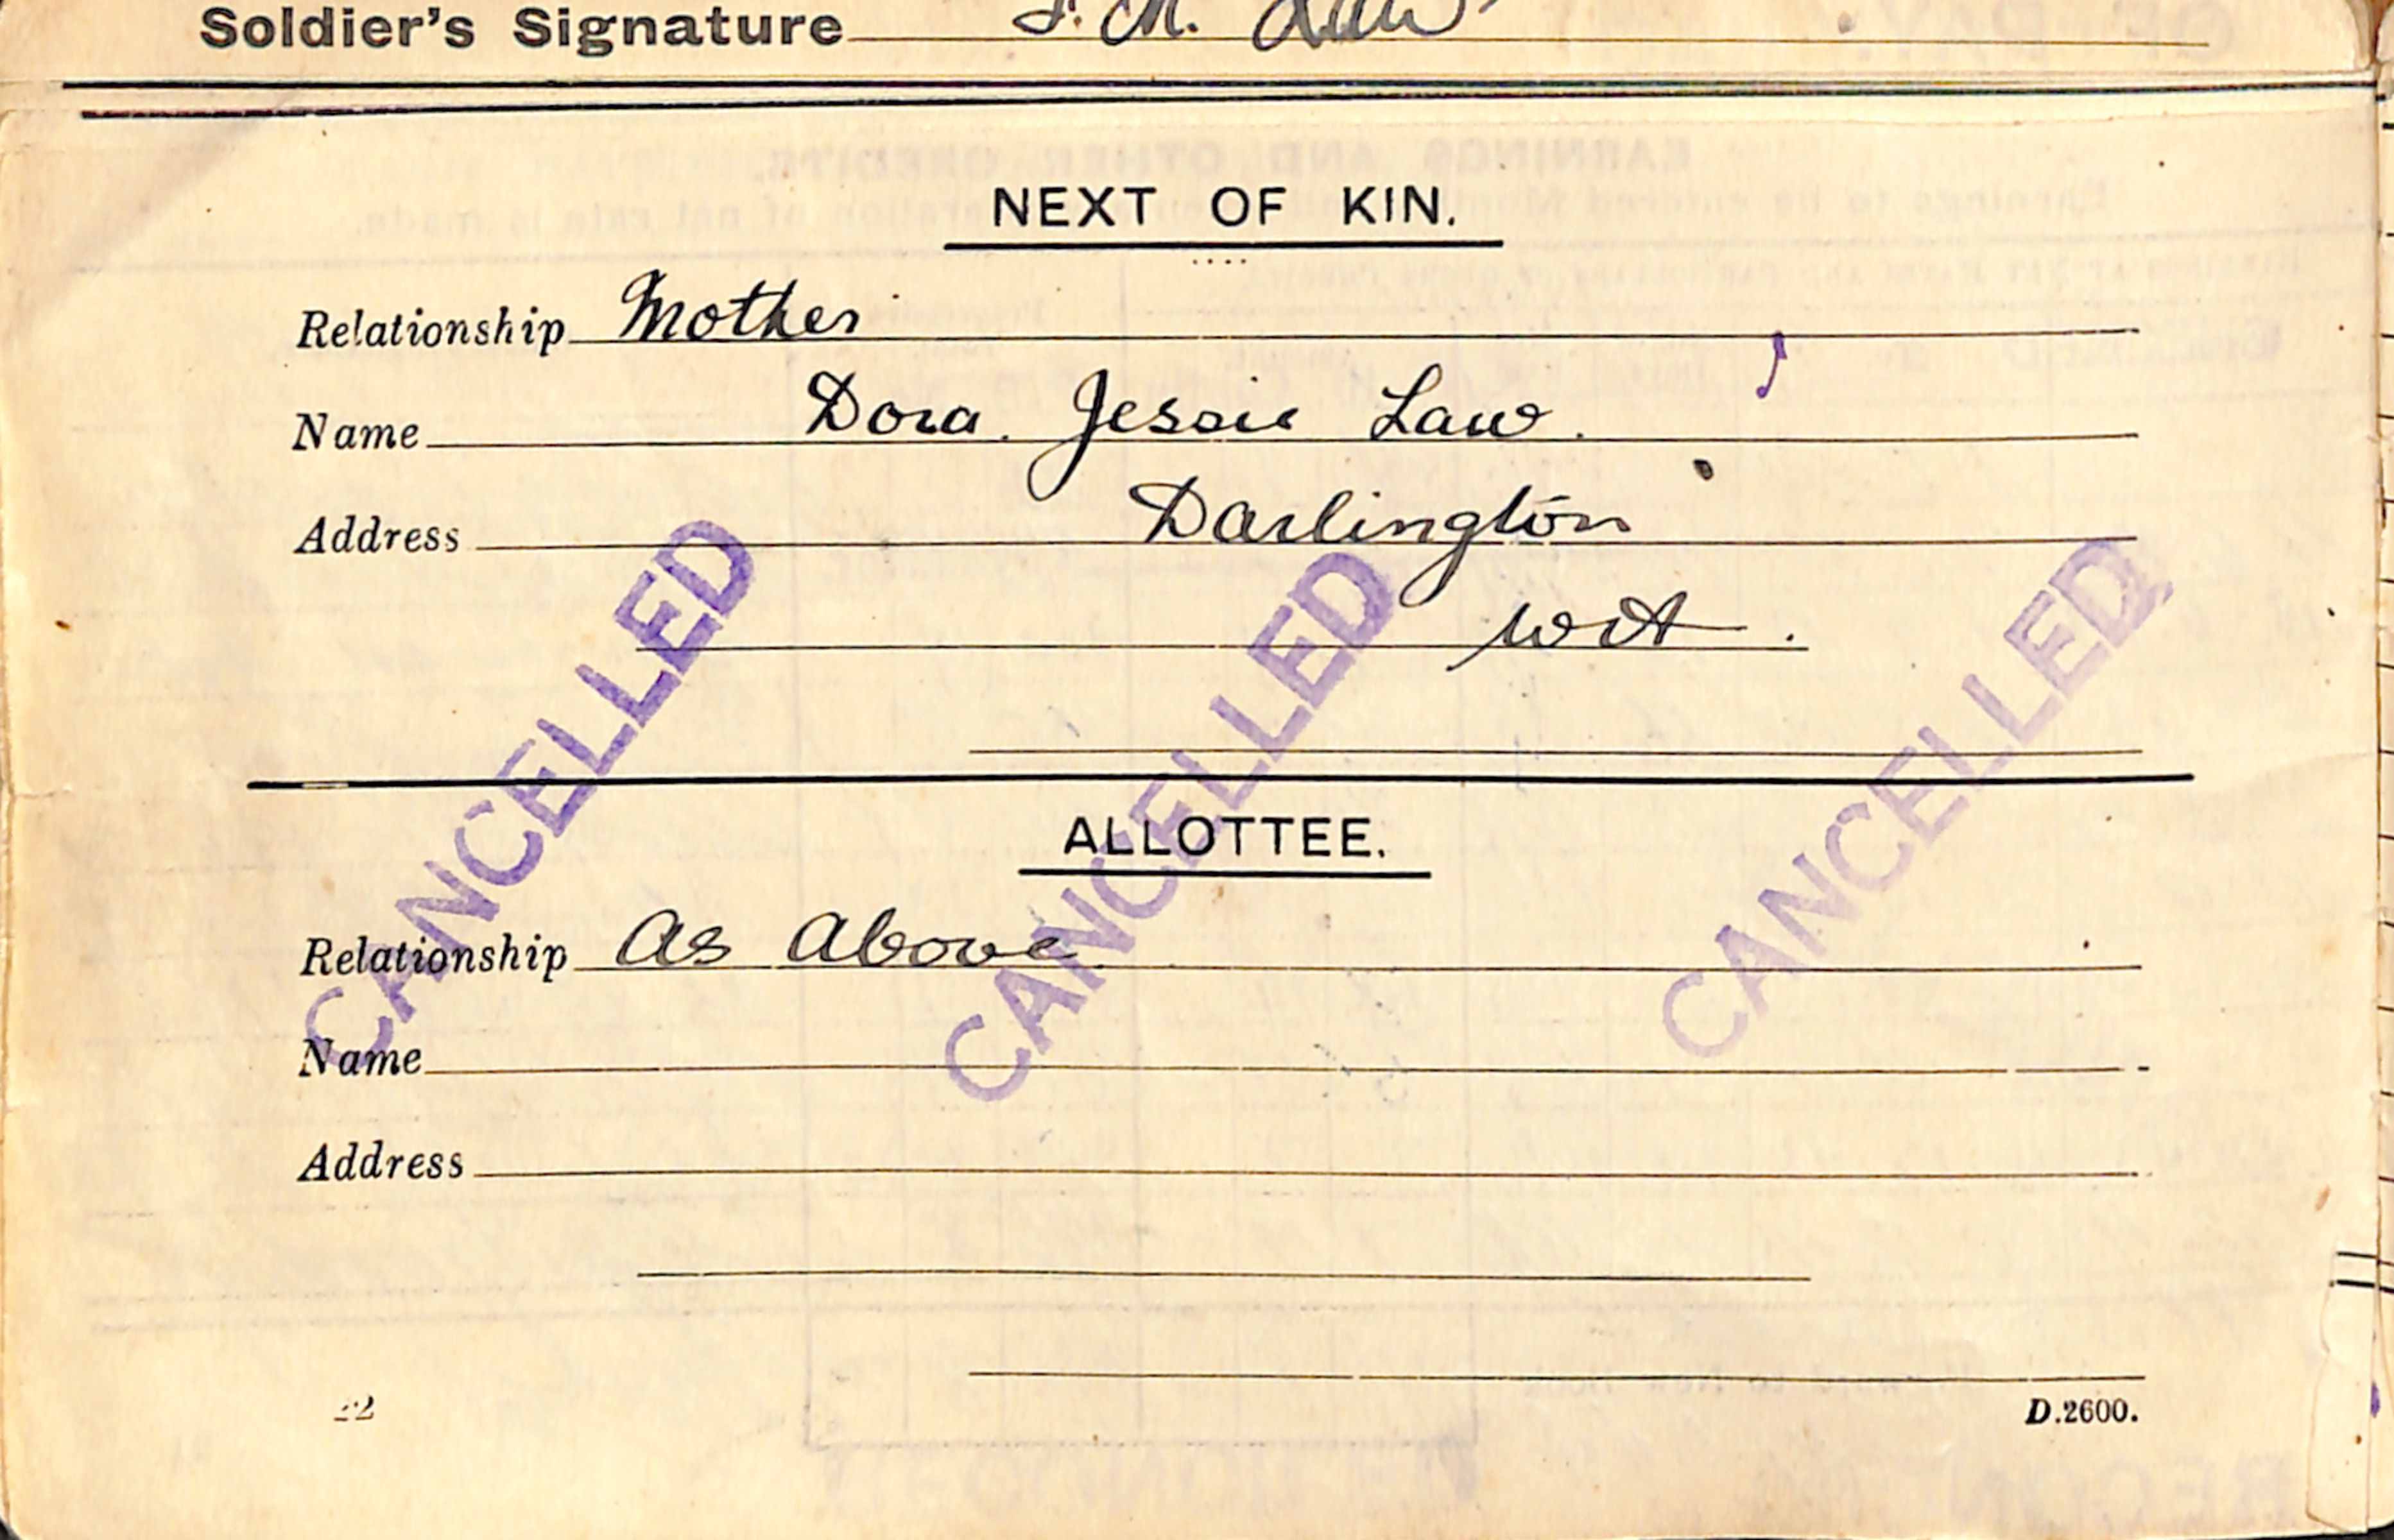 Soldier's Signature
NEXT OF KIN.
Relationship Mother
Name Dora. Jessie Law.
Address Darlington
W A.
ALLOTTEE.
Relationship As Above
Name
Address
CANCELLED
CANCELLED
CANCELLED
D.2600.